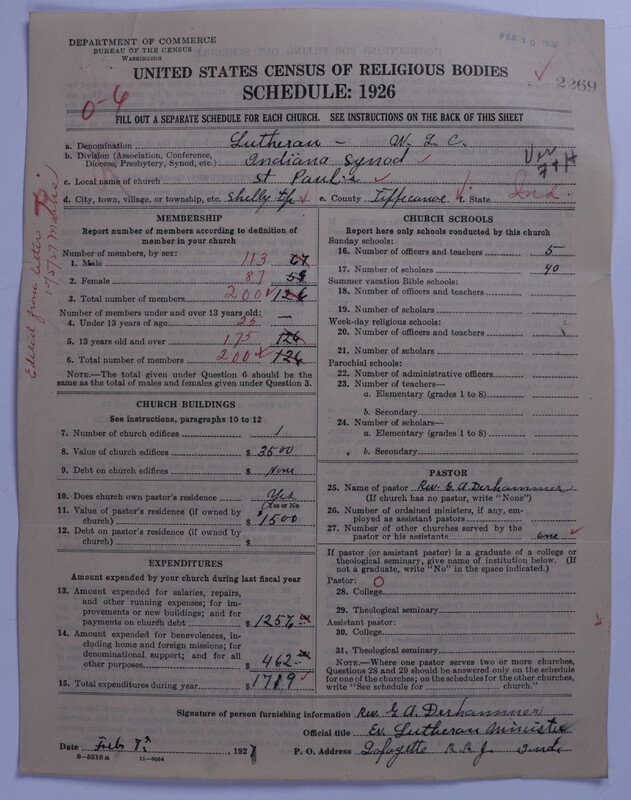 DEPARTMENT OF COMMERCE
BUREAU OF THE CENSUS
WASHINGTON
UNITED STATES CENSUS OF RELIGIOUS BODIES
SCHEDULE: 1926
2269
0-6
FILL OUT A SEPARATE SCHEDULE FOR EACH CHURCH. SEE INSTRUCTIONS ON THE BACK OF THIS SHEET
a. Denomination Lutheran - W. L. C.
b. Division (Association, Conference, Diocese, Presbytery, Synod, etc.) Indiana Synod
c. Local name of church St Paul's
d. City, town, village, or township, etc. Shelby tp e. County Tippecanoe f. State Ind.
MEMBERSHIP
Report number of members according to definition of
member in your church
Number of members, by sex:
1. Male 113 67
2. Female 87 59
3. Total number of members 200 126
Number of members under and over 13 years old:
4. Under 13 years of age 25 —
5. 13 years old and over 175 126
6. Total number of members 200 126
NOTE.—The total given under Question 6 should be the
same as the total of males and females given under Question 3.
CHURCH BUILDINGS
See instructions, paragraphs 10 to 12
7. Number of church edifices 1
8. Value of church edifices $ 3500
9. Debt on church edifices $ None
10. Does church own pastor's residence Yes
Yes or No
11. Value of pastor's residence (if owned by
church) $ 1500
12. Debt on pastor's residence (if owned by
church) $
EXPENDITURES
Amount expended by church during last fiscal year
13. Amount expended for salaries, repairs,
and other running expenses; for im-
provements or new buildings; and for
payments on church debt $ 1257
14. Amount expended for benevolences, in-
cluding home and foreign missions; for
denominational support; and for all
other purposes $ 462
15. Total expenditures during year $ 1719
CHURCH SCHOOLS
Report here only schools conducted by this church
Sunday schools:
16. Number of officers and teachers 5
17. Number of scholars 40
Summer vacation Bible schools:
18. Number of officers and teachers
19. Number of scholars
Week-day religious schools:
20. Number of officers and teachers
21. Number of scholars
Parochial schools:
22. Number of administrative officers
23. Number of teachers—
a. Elementary (grades 1 to 8)
b. Secondary
24. Number of scholars—
a. Elementary (grades 1 to 8)
b. Secondary
PASTOR
25. Name of pastor Rev. G. A. Derhammer
(If church has no pastor, write "None")
26. Number of ordained ministers, if any, em-
ployed as assistant pastors
27. Number of other churches served by the
pastor or his assistants one
If pastor (or assistant pastor) is a graduate of a college or
theological seminary, give name of institution below. (If
not a graduate, write "No" in the space indicated.)
Pastor:
28. College
29. Theological seminary
Assistant pastor:
30. College
31. Theological seminary
NOTE.—Where one pastor serves two or more churches,
Questions 28 and 29 should be answered only on the schedule
for one of the churches; on the schedules for the other churches,
write "See schedule for church."
Signature of person furnishing information Rev. G A Derhammer
Official title Ev. Lutheran Minister
Date Feb 7 1927 P. O. Address Lafayette R. R. J Ind.
8-5518a 11-9264